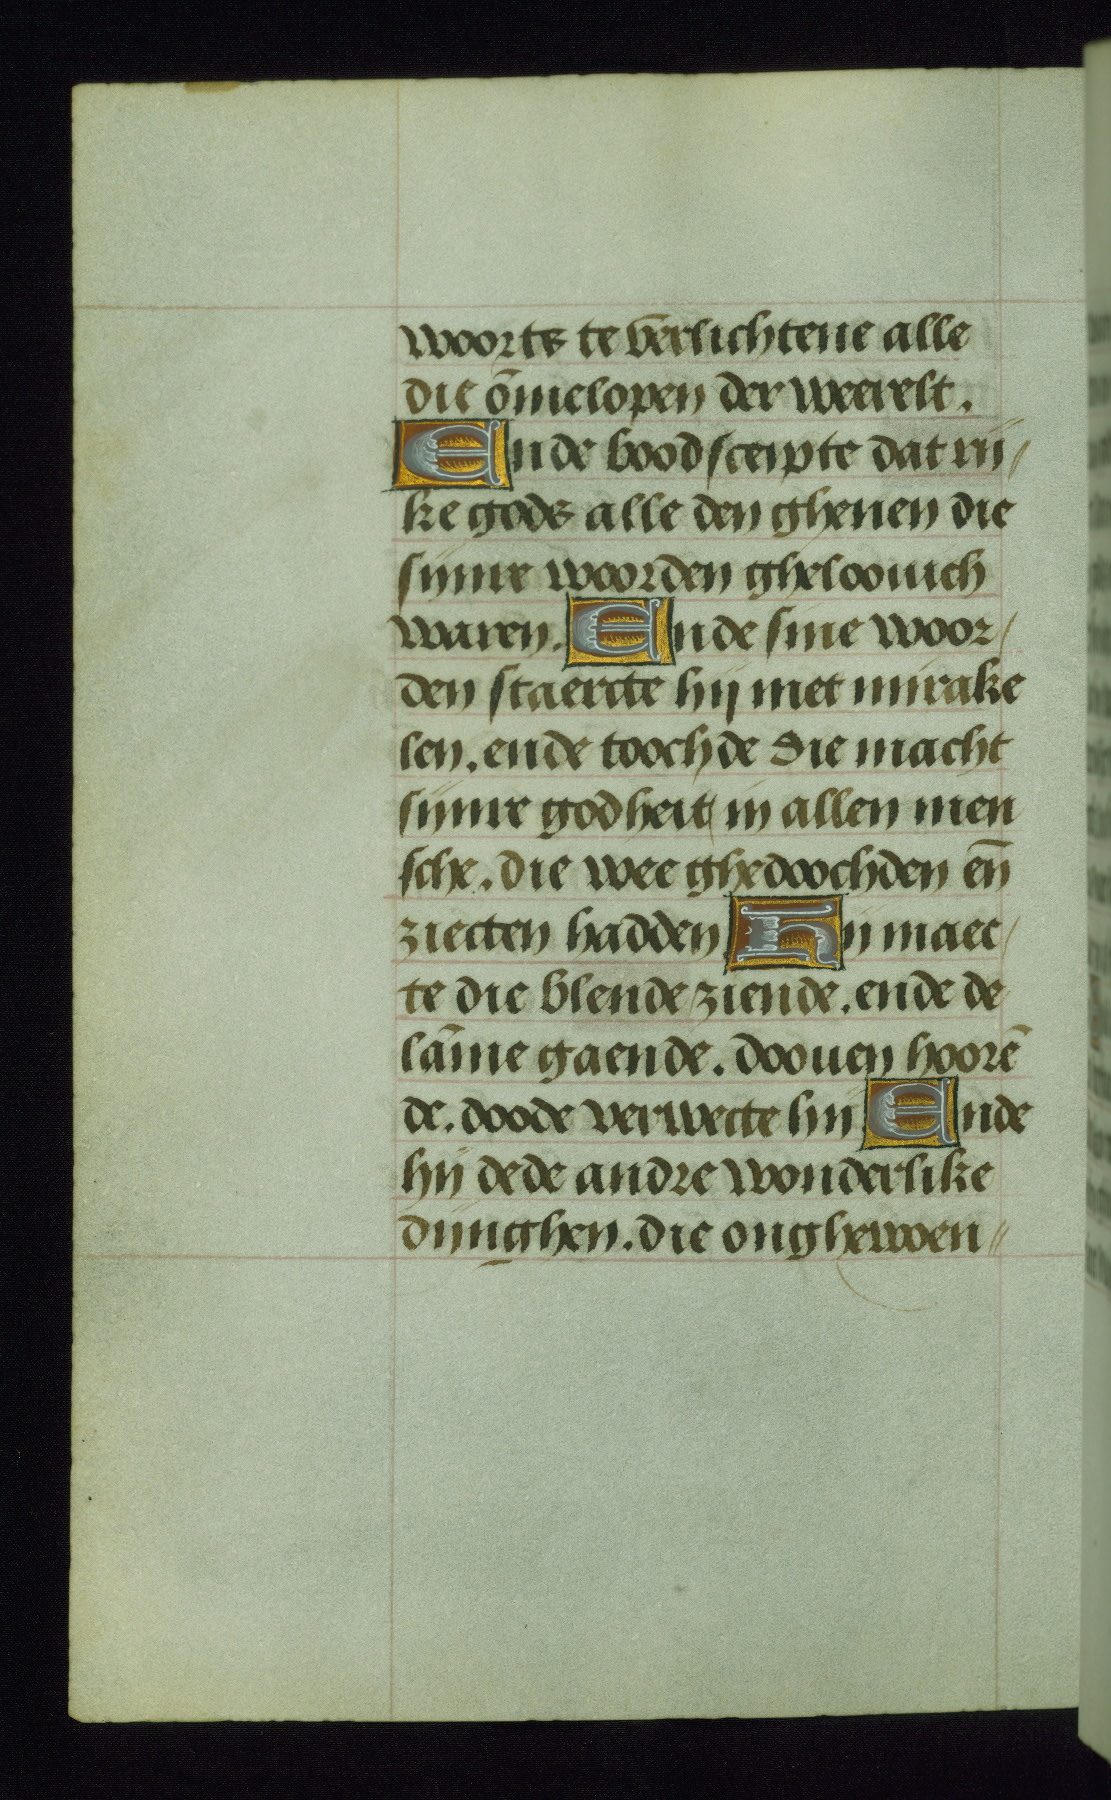 woorts te verlichtene alle
die ōmelopen der weerelt.
Ende boodsceipte dat rij/
ke gods alle den ghenen die
sijnre woorden gheloouich
waren. Ende sine woor/
den staercte hij met mirake
len. ende toochde die macht
sijnre godheit in allen men
sche. die wee ghedoochden en̄
ziecten hadden Hij maec/
te die blende ziende. ende de
lāme gaende. doouen hoorē
de. doode verwecte hij Ende
hij dede andre wonderlike
dijnghen. die onghewoen//